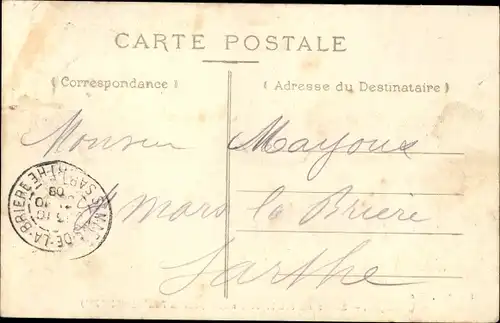 CARTE POSTALE
(Correspondance)
(Adresse du Destinataire)
Monsieur Mayoux
St Mars la Brière
Sarthe
DE-LA-BRIERE
SARTHE
09